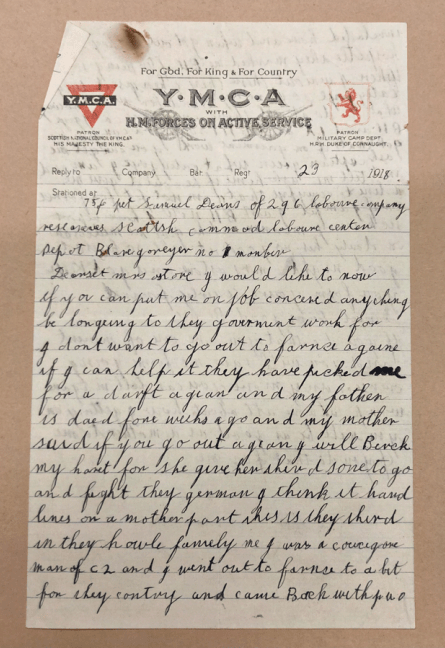 For God, For King & For Country
Y·M·C·A
Y.M.C.A.
WITH
H.M. FORCES ON ACTIVE SERVICE
PATRON
SCOTTISH NATIONAL COUNCIL OF Y.M.C.A'S
HIS MAJESTY THE KING.
PATRON
MILITARY CAMP DEPT.
H.R.H. DUKE OF CONNAUGHT.
Reply to Company Bat. Regt 23 1918
Stationed at
754 pet Samuel Deans of 296 laboure company
scottish commod laboure center
Depot no 1
Dearset mrs store y would like to now
if you can put me on job concered anything
be longeing to they goverment work for
y dont want to go out to farnse againe
if y can help it they have picked me
for a darft agean and my father
is daed fore weeks ago and my mother
said if you go out agean y will Breck
my haret for she give her shird sone to go
and fight they german y think it hard
lines on a mother part this is they third
in they howle famely me y was a
man of C2 and y went out to farnse to a bit
for they contry and came Back with